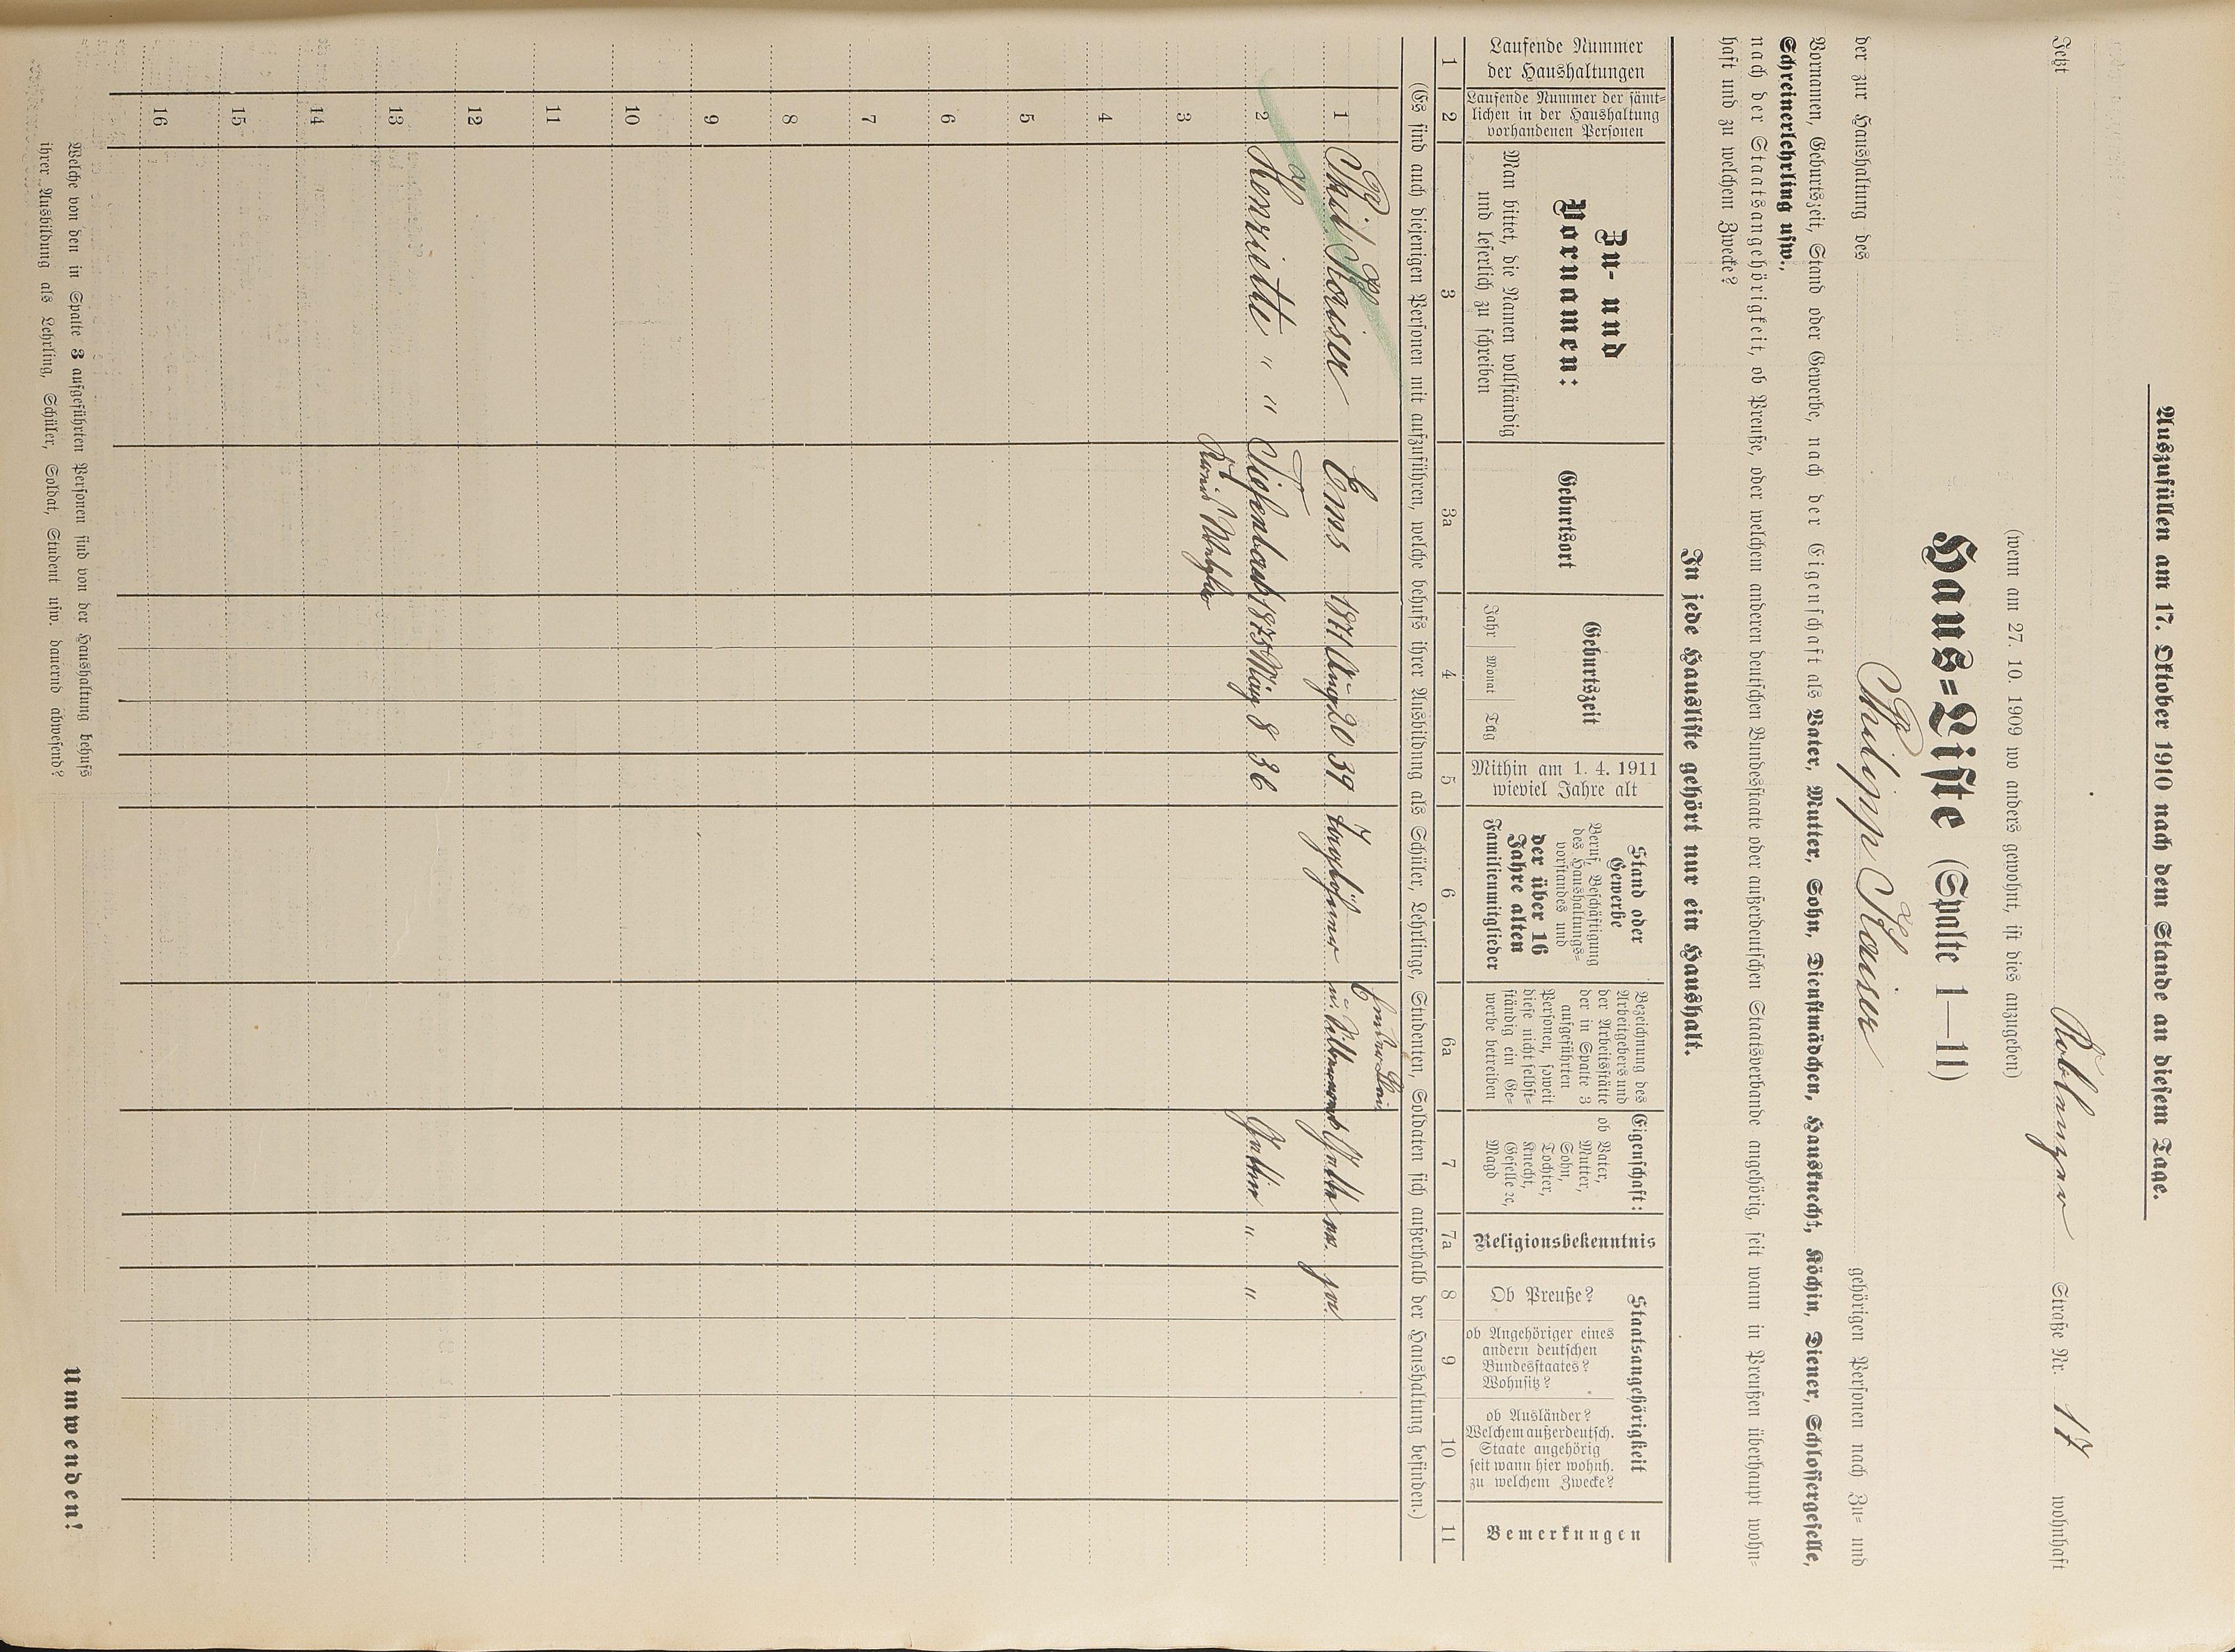 Auszufüllen am 17. Oktober 1910 nach dem Stande an diesem Tage.
Jetzt Koblenzer Straße Nr. 17 wohnhaft
(wenn am 27. 10. 1909 wo anders gewohnt, ist dies anzugeben)
Haus=Liste (Spalte 1—11)
der zur Haushaltung des Philipp Kaiser gehörigen Personen nach Zu= und
Vornamen, Geburtszeit, Stand oder Gewerbe, nach der Eigenschaft als Vater, Mutter, Sohn, Dienstmädchen, Hausknecht, Köchin, Diener, Schlossergeselle,
Schreinerlehrling usw.,
nach der Staatsangehörigkeit, ob Preuße, oder welchem anderen deutschen Bundesstaate oder außerdeutschen Staatsverbande angehörig, seit wann in Preußen überhaupt wohn=
haft und zu welchem Zwecke?
In jede Hausliste gehört nur ein Haushalt.
Laufende Nummer
der Haushaltungen
Laufende Nummer der sämt=
lichen in der Haushaltung
vorhandenen Personen
Zu- und
Vornamen:
Man bittet, die Namen vollständig
und leserlich zu schreiben
Geburtsort
Geburtszeit
Jahr Monat Tag
Mithin am 1. 4. 1911
wieviel Jahre alt
Stand oder
Gewerbe
Beruf, Beschäftigung
des Haushaltungs=
vorstandes und
der über 16
Jahre alten
Familienmitglieder
Bezeichnung des
Arbeitgebers und
der Arbeitsstätte
der in Spalte 3
aufgeführten
Personen, soweit
diese nicht selbst=
ständig ein Ge=
werbe betreiben
Eigenschaft:
ob Vater,
Mutter,
Sohn,
Tochter,
Knecht,
Geselle ꝛc,
Magd
Religionsbekenntnis
Staatsangehörigkeit
Ob Preuße?
ob Angehöriger eines
andern deutschen
Bundesstaates?
Wohnsitz?
ob Ausländer?
Welchem außerdeutsch.
Staate angehörig
seit wann hier wohnh.
zu welchem Zwecke?
Bemerkungen
1 2 3 3a 4 5 6 6a 7 7a 8 9 10 11
(Es sind auch diejenigen Personen mit aufzuführen, welche behufs ihrer Ausbildung als Schüler, Lehrlinge, Studenten, Soldaten sich außerhalb der Haushaltung befinden.)
1 Phil. Kaiser Ems 1871 Aug 20 39 Tagelöhner Gatte ev. ja
2 Henriette " " Tiefenbach 1875 März 8 36 Gattin " "
Kreis Wetzlar
3
4
5
6
7
8
9
10
11
12
13
14
15
16
Welche von den in Spalte 3 aufgeführten Personen sind von der Haushaltung behufs
ihrer Ausbildung als Lehrling, Schüler, Soldat, Student usw. dauernd abwesend?
Umwenden!